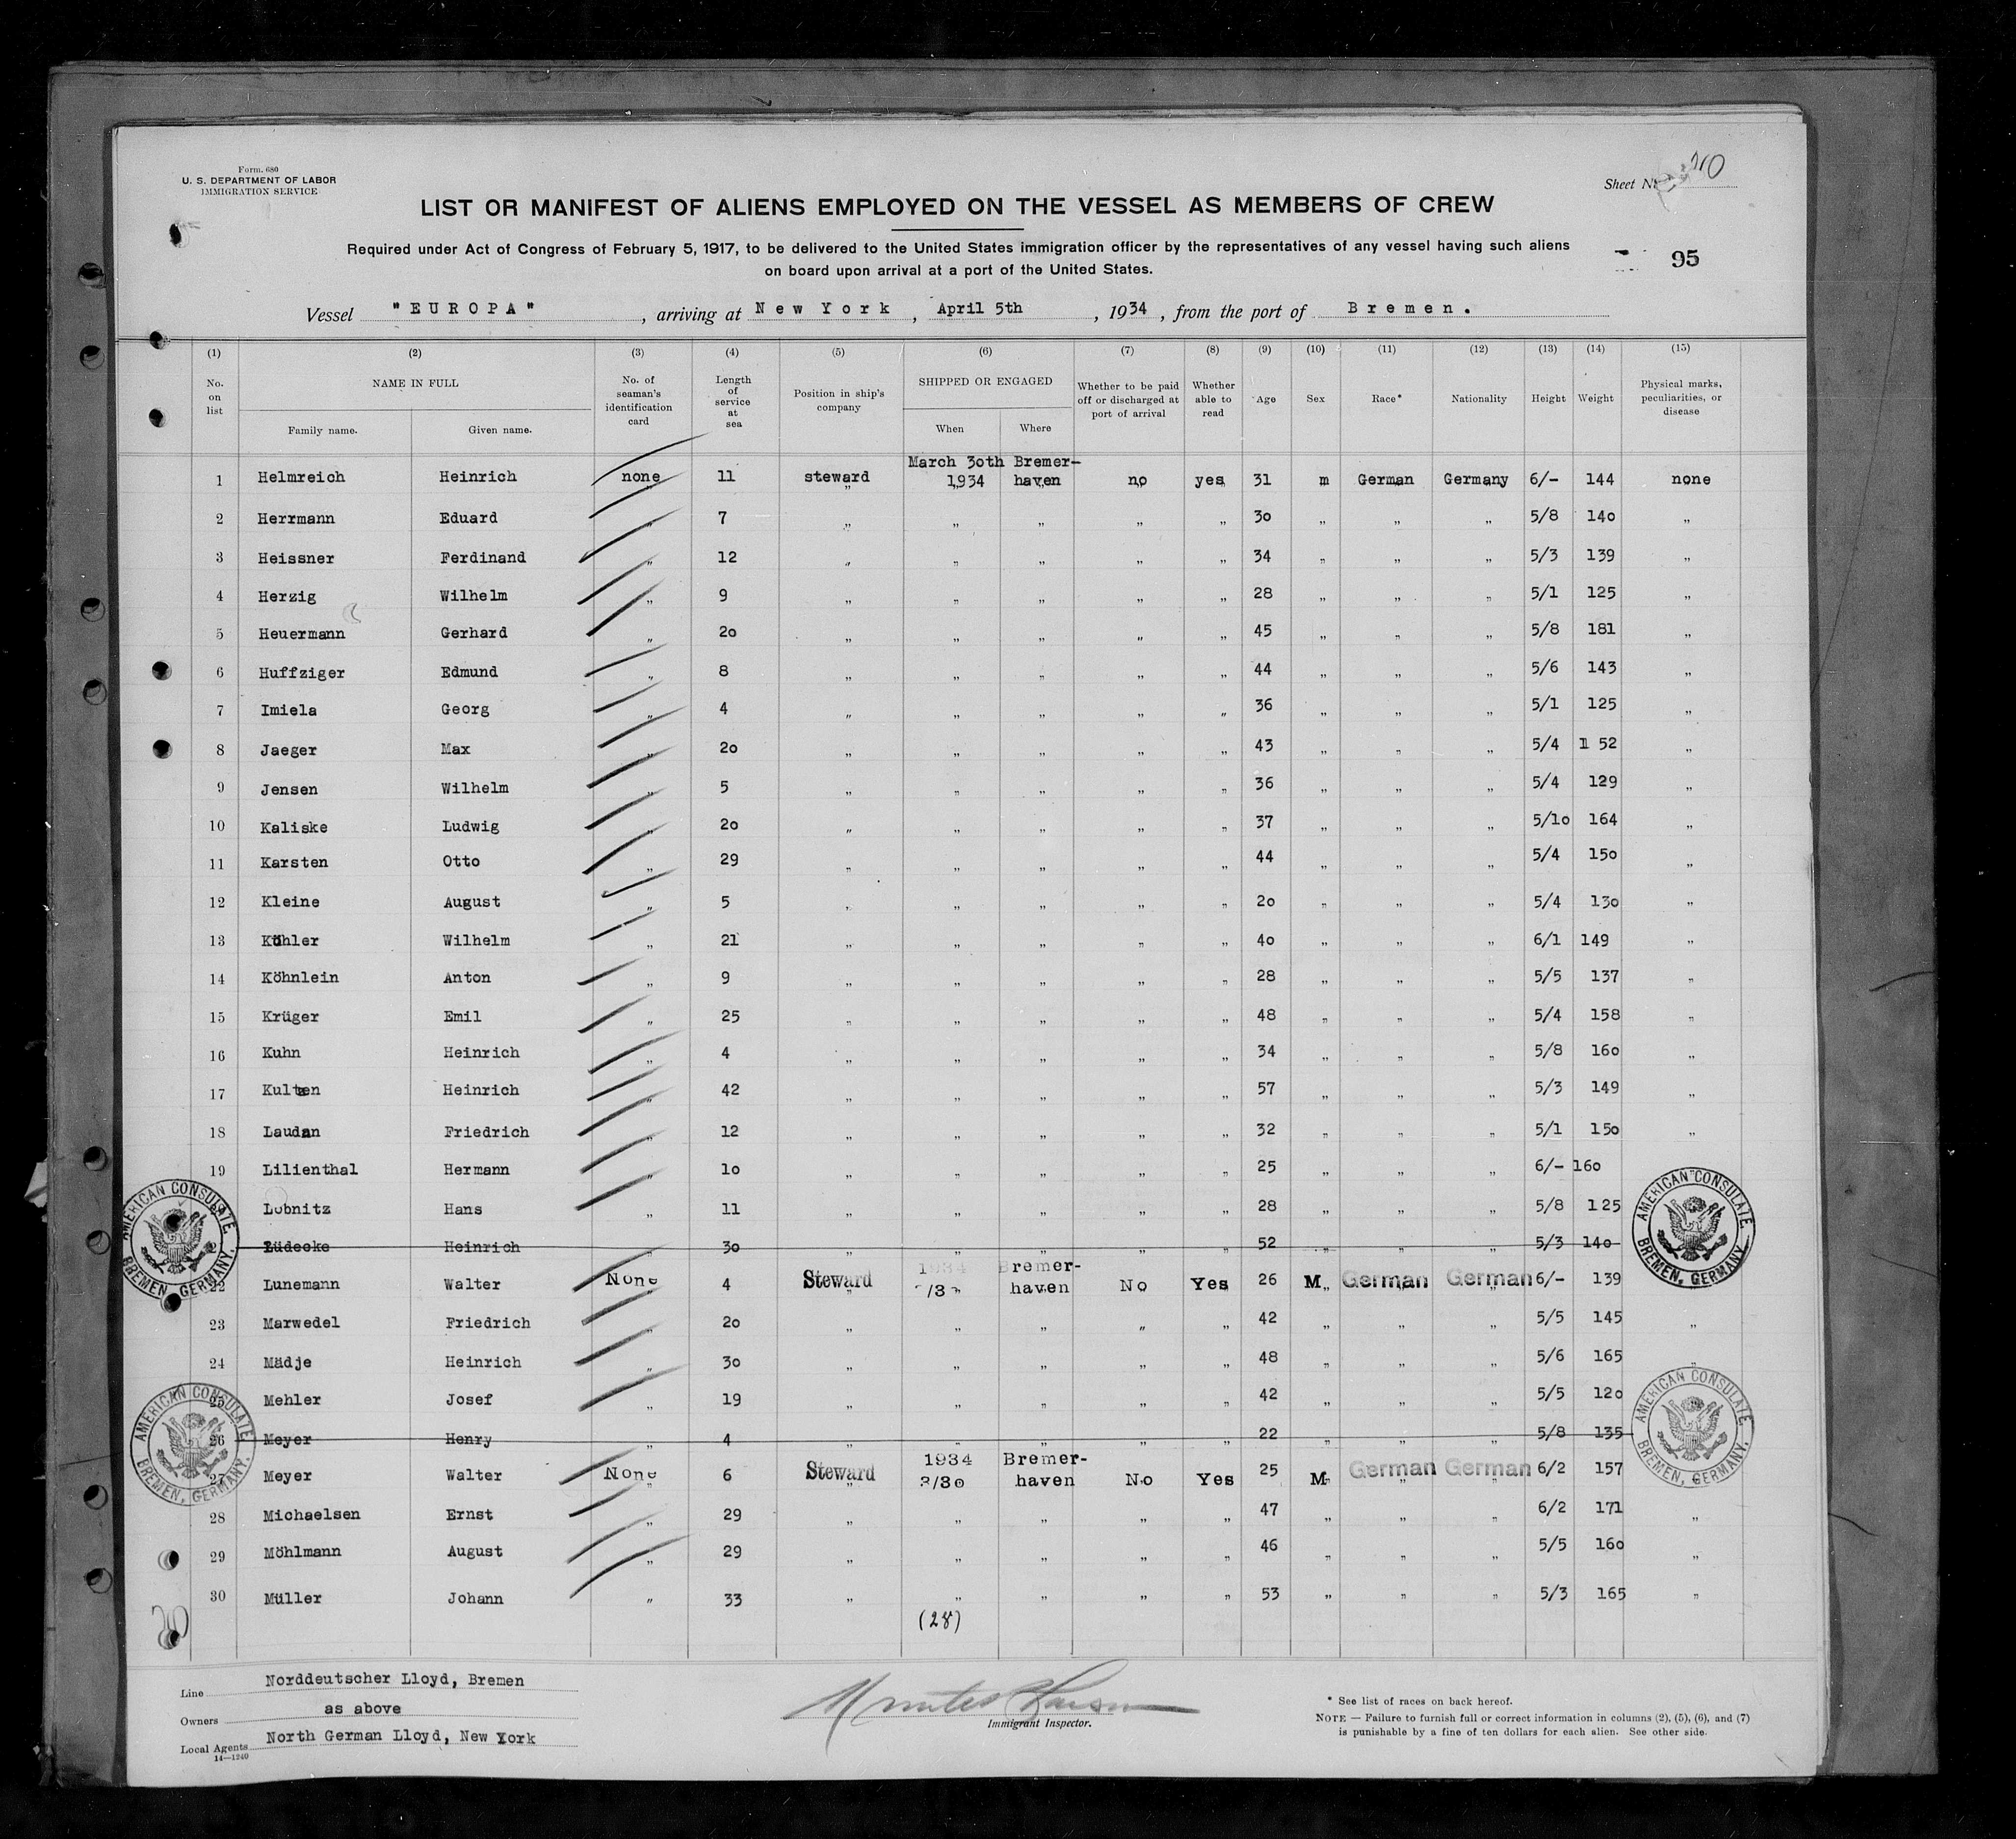 Form. 680
U. S. DEPARTMENT OF LABOR
IMMIGRATION SERVICE
Sheet No. 210
LIST OR MANIFEST OF ALIENS EMPLOYED ON THE VESSEL AS MEMBERS OF CREW
Required under Act of Congress of February 5, 1917, to be delivered to the United States immigration officer by the representatives of any vessel having such aliens
on board upon arrival at a port of the United States.
95
Vessel "EUROPA", arriving at New York, April 5th, 1934, from the port of Bremen.
(1) (2) (3) (4) (5) (6) (7) (8) (9) (10) (11) (12) (13) (14) (15)
No. on list NAME IN FULL Family name. Given name. No. of seaman's identification card Length of service at sea Position in ship's company SHIPPED OR ENGAGED When Where Whether to be paid off or discharged at port of arrival Whether able to read Age Sex Race* Nationality Height Weight Physical marks, peculiarities, or disease
1 Helmreich Heinrich none 11 steward March 30th 1934 Bremer-haven no yes 31 m German Germany 6/- 144 none
2 Herrmann Eduard " 7 " " " " " 30 " " " 5/8 140 "
3 Heissner Ferdinand " 12 " " " " " 34 " " " 5/3 139 "
4 Herzig Wilhelm " 9 " " " " " 28 " " " 5/1 125 "
5 Heuermann Gerhard " 20 " " " " " 45 " " " 5/8 181 "
6 Huffziger Edmund " 8 " " " " " 44 " " " 5/6 143 "
7 Imiela Georg " 4 " " " " " 36 " " " 5/1 125 "
8 Jaeger Max " 20 " " " " " 43 " " " 5/4 1 52 "
9 Jensen Wilhelm " 5 " " " " " 36 " " " 5/4 129 "
10 Kaliske Ludwig " 20 " " " " " 37 " " " 5/10 164 "
11 Karsten Otto " 29 " " " " " 44 " " " 5/4 150 "
12 Kleine August " 5 " " " " " 20 " " " 5/4 130 "
13 Köhler Wilhelm " 21 " " " " " 40 " " " 6/1 149 "
14 Köhnlein Anton " 9 " " " " " 28 " " " 5/5 137 "
15 Krüger Emil " 25 " " " " " 48 " " " 5/4 158 "
16 Kuhn Heinrich " 4 " " " " " 34 " " " 5/8 160 "
17 Kulten Heinrich " 42 " " " " " 57 " " " 5/3 149 "
18 Laudan Friedrich " 12 " " " " " 32 " " " 5/1 150 "
19 Lilienthal Hermann " 10 " " " " " 25 " " " 6/- 160 "
Lobnitz Hans " 11 " " " " " 28 " " " 5/8 125
2 Lüdecke Heinrich " 30 " " " " " 52 " " " 5/3 140
22 Lunemann Walter None 4 Steward 1934 /3 Bremer-haven No Yes 26 M German German 6/- 139
23 Marwedel Friedrich " 20 " " " " " 42 " " " 5/5 145 "
24 Mädje Heinrich " 30 " " " " " 48 " " " 5/6 165 "
25 Mehler Josef " 19 " " " " " 42 " " " 5/5 120
26 Meyer Henry " 4 " " " " " 22 " " " 5/8 135
27 Meyer Walter None 6 Steward 1934 3/30 Bremer-haven No Yes 25 M German German 6/2 157 "
28 Michaelsen Ernst " 29 " " " " " 47 " " " 6/2 171 "
29 Möhlmann August " 29 " " " " " 46 " " " 5/5 160 "
30 Müller Johann " 33 " " " " " 53 " " " 5/3 165 "
(28)
AMERICAN CONSULATE BREMEN, GERMANY.
AMERICAN CONSULATE BREMEN, GERMANY.
AMERICAN CONSULATE BREMEN, GERMANY.
AMERICAN CONSULATE BREMEN, GERMANY.
Line Norddeutscher Lloyd, Bremen
Owners as above
Local Agents North German Lloyd, New York
14—1240
Immigrant Inspector.
* See list of races on back hereof.
NOTE — Failure to furnish full or correct information in columns (2), (5), (6), and (7)
is punishable by a fine of ten dollars for each alien. See other side.